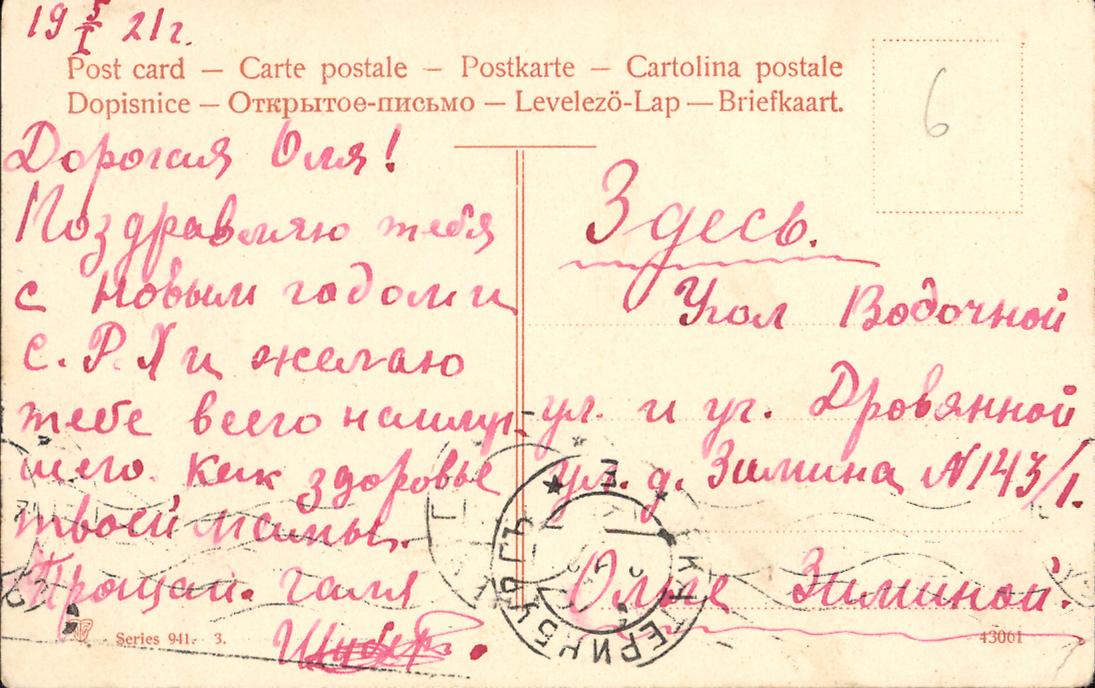 19 5/I 21г.
Post card — Carte postale — Postkarte — Cartolina postale
Dopisnice — Открытое-письмо — Levelező-Lap — Briefkaart.
6
Дорогая Оля!
Поздравляю тебя
с новым годом и
с. Р. Х и желаю
тебе всего наилуч-
шего. как здоровье
твоей мамы.
Прощай. галя
Здесь.
Угол Водочной
ул. и уг. Дровянной
ул. д. Зимина №143/1.
Ольге Зиминой.
ЕКАТЕРИНБУРГЪ
Series 941. 3.
43061